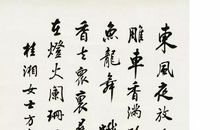 東風夜放
雕車香滿
魚龍舞蛾
香去衆裏
在燈火闌珊
桂湘女士方